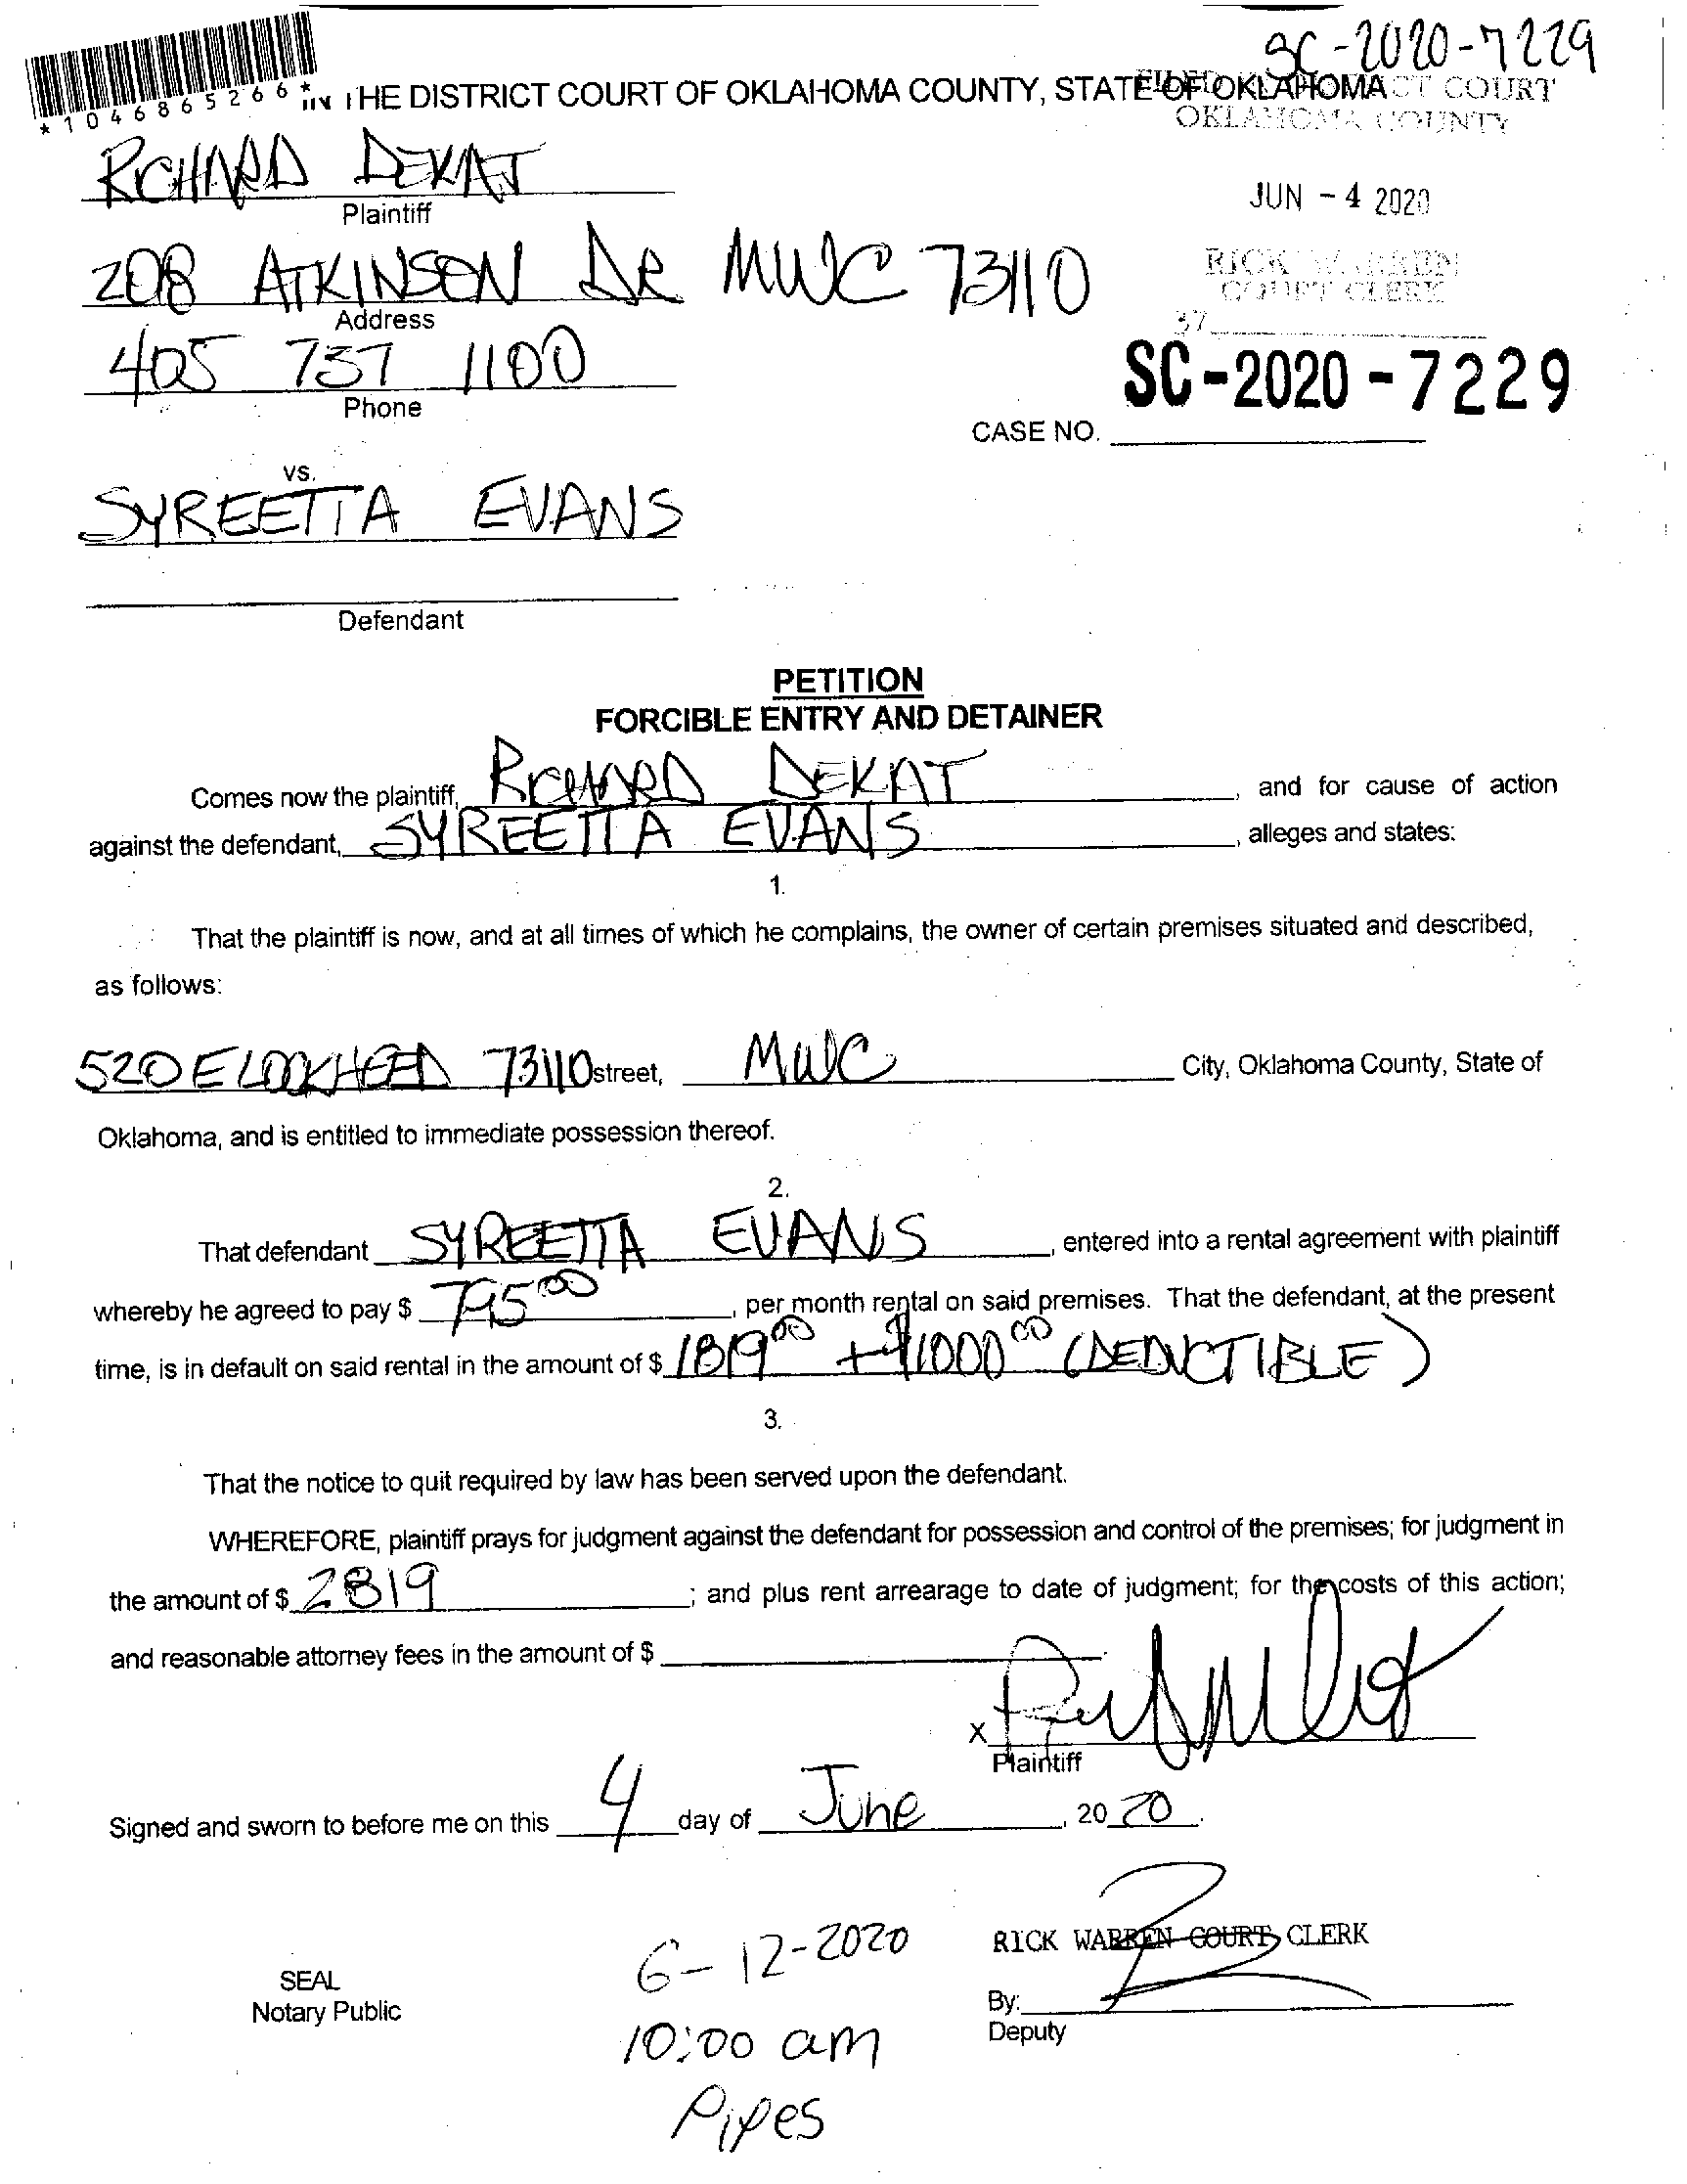 SC-2020-7229
*1046865266*
IN THE DISTRICT COURT OF OKLAHOMA COUNTY, STATE OF OKLAHOMA
FILED DISTRICT COURT
OKLAHOMA COUNTY
RICHARD DEKAT
Plaintiff
JUN - 4 2020
208 ATKINSON DR MWC 73110
Address
RICK WARREN
COURT CLERK
37
405 737 1100
Phone
SC-2020-7229
CASE NO.
vs.
SYREETTA EVANS
Defendant
PETITION
FORCIBLE ENTRY AND DETAINER
Comes now the plaintiff, RICHARD DEKAT, and for cause of action
against the defendant, SYREETTA EVANS, alleges and states:
1.
That the plaintiff is now, and at all times of which he complains, the owner of certain premises situated and described,
as follows:
520 E LOCKHEED 73110 street, MWC City, Oklahoma County, State of
Oklahoma, and is entitled to immediate possession thereof.
2.
That defendant SYREETTA EVANS, entered into a rental agreement with plaintiff
whereby he agreed to pay $ 795.00, per month rental on said premises. That the defendant, at the present
time, is in default on said rental in the amount of $ 1819.00 + $1000.00 (DEDUCTIBLE)
3.
That the notice to quit required by law has been served upon the defendant.
WHEREFORE, plaintiff prays for judgment against the defendant for possession and control of the premises; for judgment in
the amount of $ 2819; and plus rent arrearage to date of judgment; for the costs of this action;
and reasonable attorney fees in the amount of $
X
Plaintiff
Signed and sworn to before me on this 4 day of June, 2020.
RICK WARREN COURT CLERK
6-12-2020
SEAL
Notary Public
By:
Deputy
10:00 am
Pipes